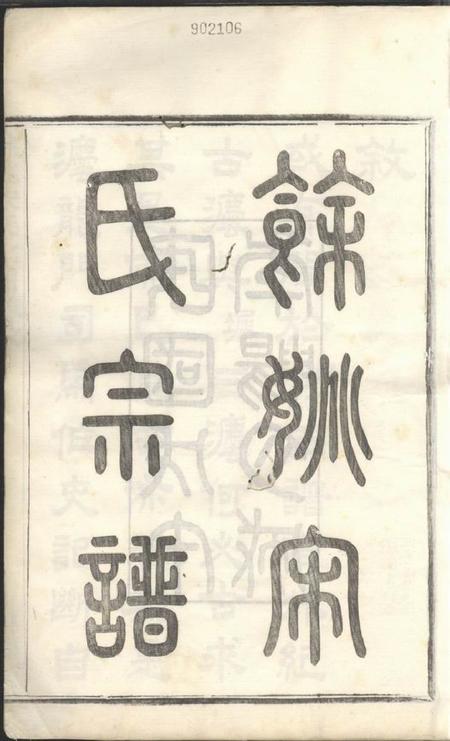 902106
餘姚宋
氏宗譜